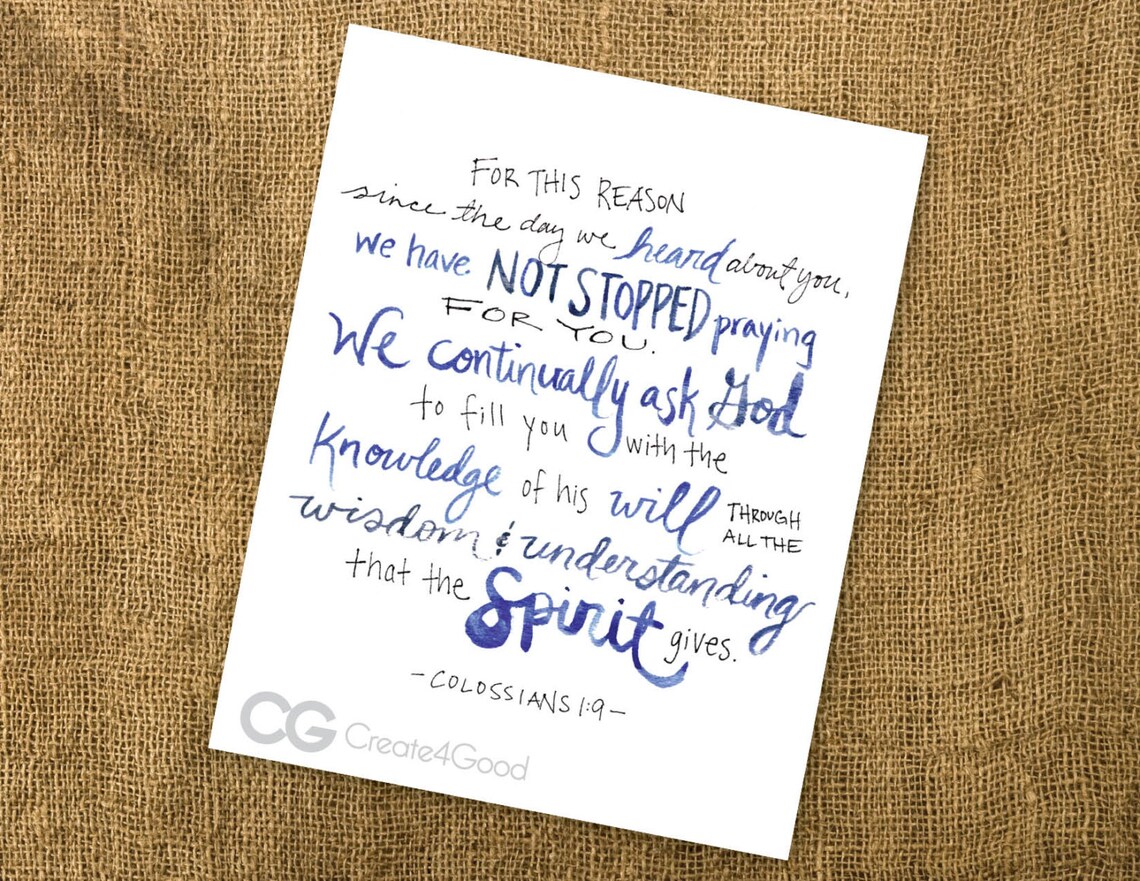 FOR THIS REASON
since the day we heard about you,
we have NOT STOPPED praying
FOR YOU.
We continually ask God
to fill you with the
Knowledge of his will THROUGH
ALL THE
wisdom & understanding
that the Spirit gives.
-COLOSSIANS 1:9-
CG Create4Good